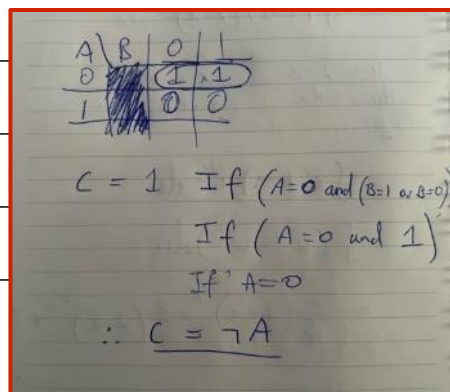 A \ B | 0 | 1
0 | 1 | 1
1 | 0 | 0
C = 1 If (A=0 and (B=1 or B=0)
If (A=0 and 1)
If A=0
∴ C = ¬A